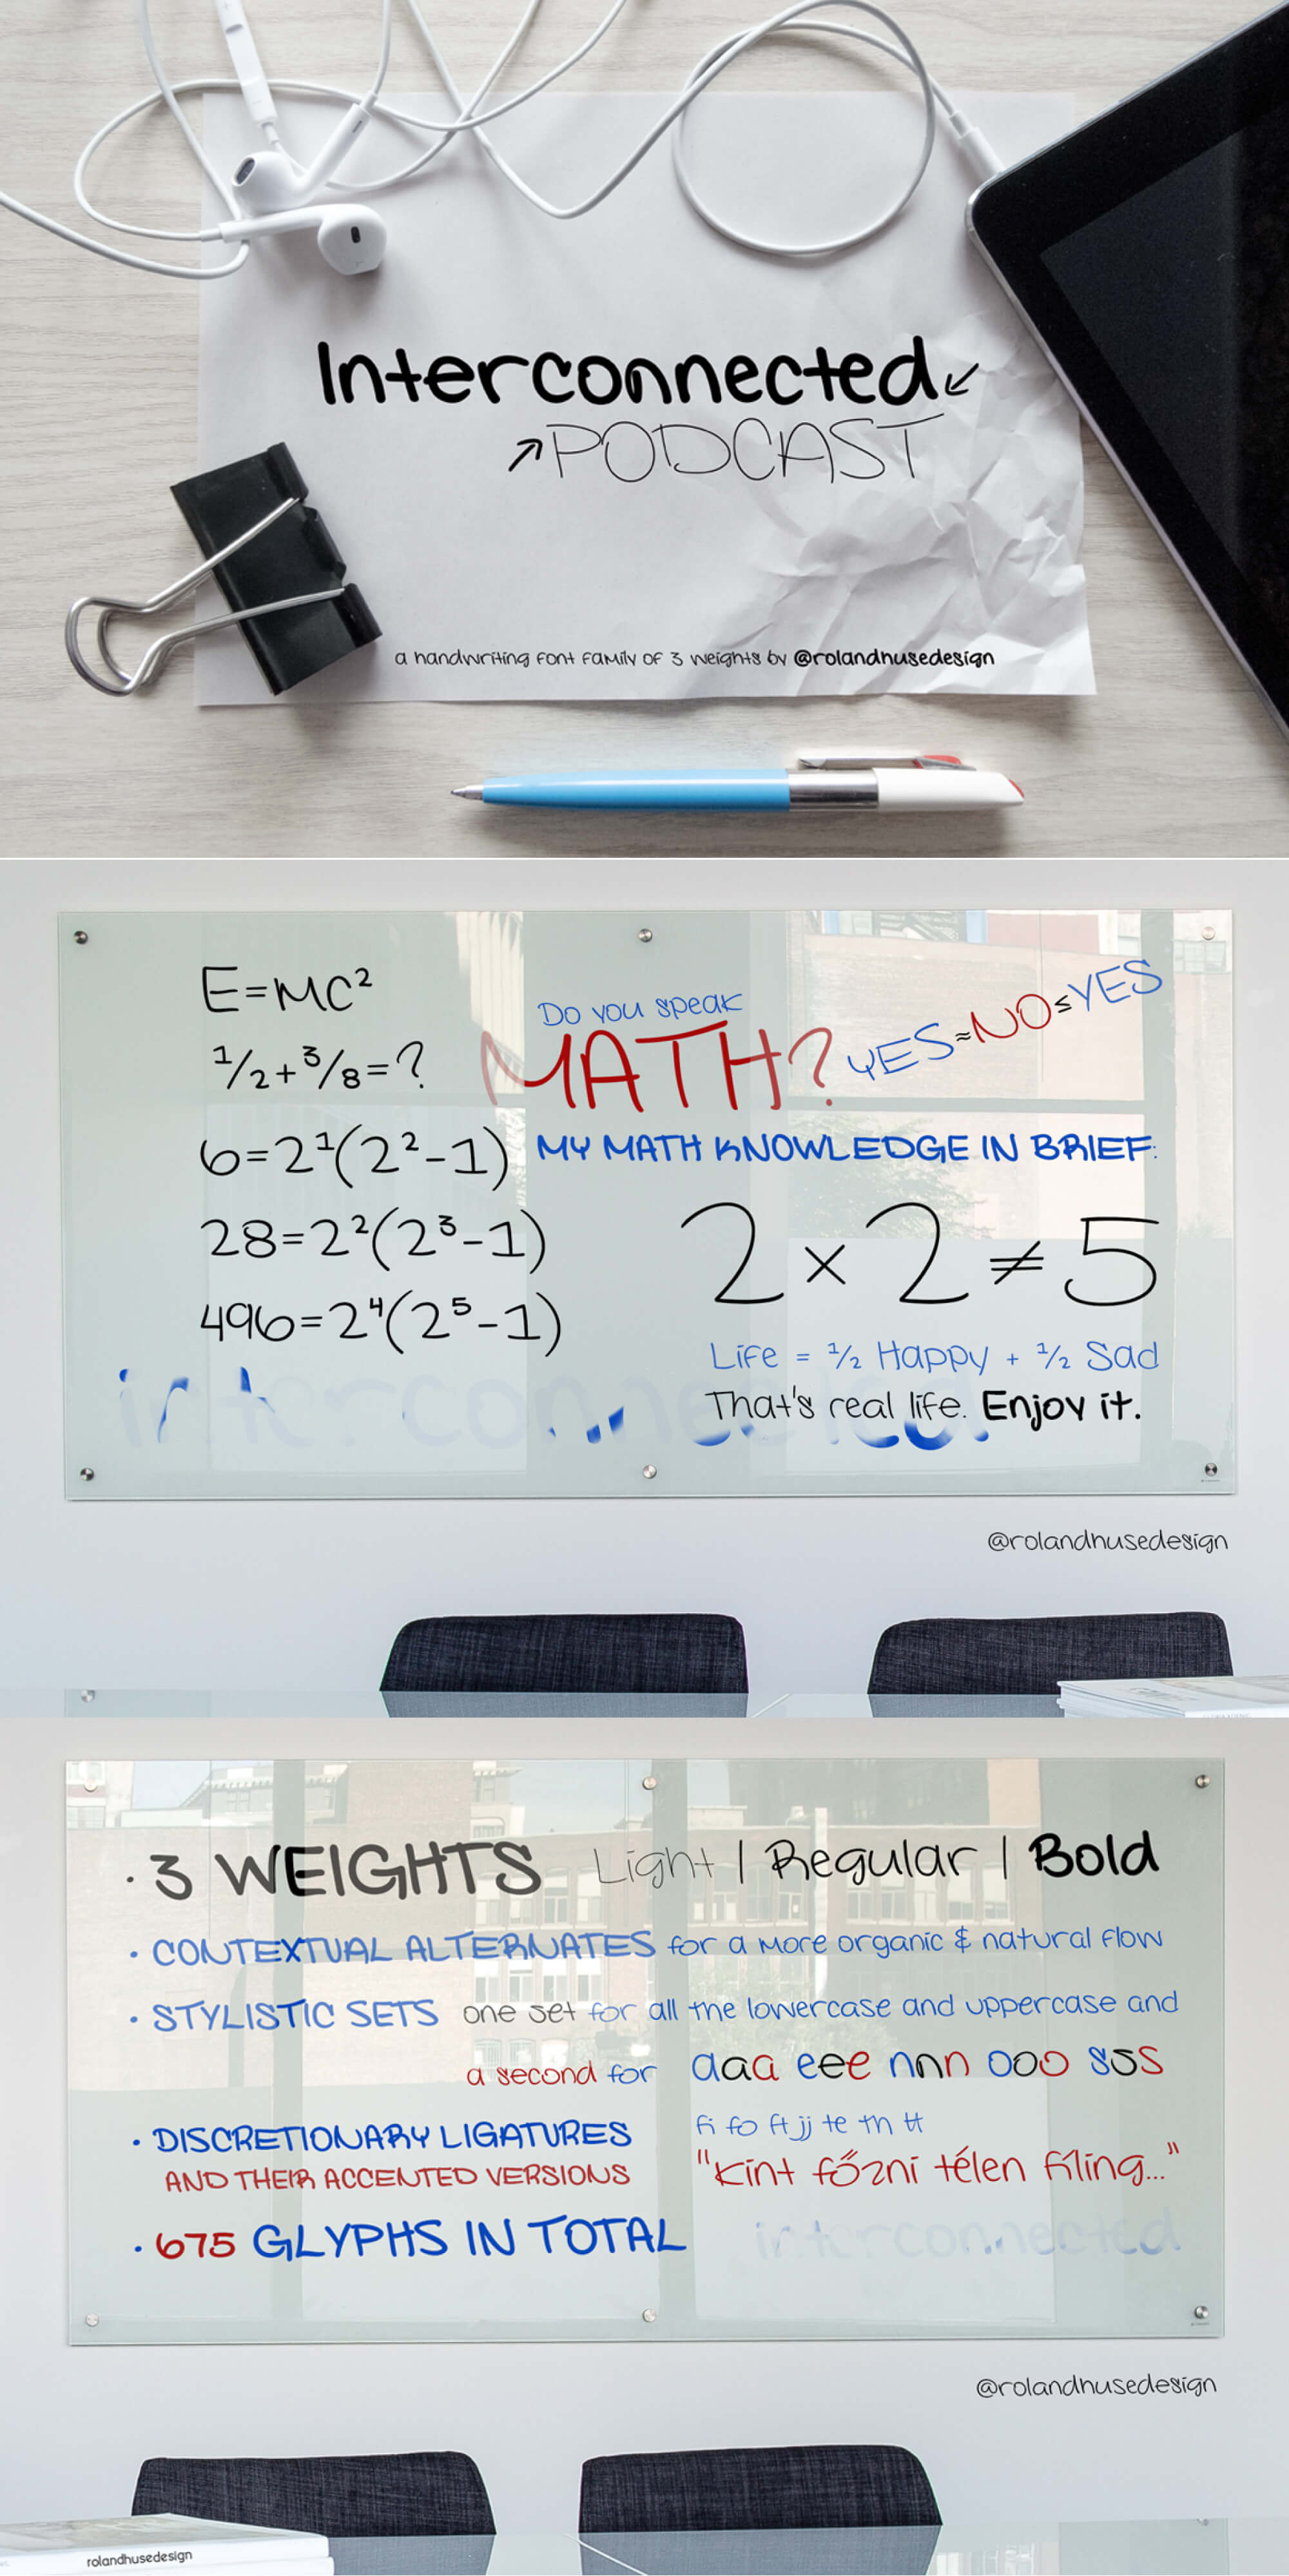 Interconnected↙
↗PODCAST
a handwriting font family of 3 weights by @rolandhusedesign
E=MC²
½+⅜=?
6=2¹(2²-1)
28=2²(2³-1)
496=2⁴(2⁵-1)
Do you speak
MATH?
YES≈NO≤YES
MY MATH KNOWLEDGE IN BRIEF:
2×2≠5
Life = ½ Happy + ½ Sad
That's real life. Enjoy it.
interconnected.
@rolandhusedesign
· 3 WEIGHTS Light | Regular | Bold
· CONTEXTUAL ALTERNATES for a more organic & natural flow
· STYLISTIC SETS one set for all the lowercase and uppercase and
a second for aaa eee nnn ooo sss
· DISCRETIONARY LIGATURES fi fo ft jj te th tt
AND THEIR ACCENTED VERSIONS "Kint főzni télen fíling..."
· 675 GLYPHS IN TOTAL
interconnected.
@rolandhusedesign
rolandhusedesign